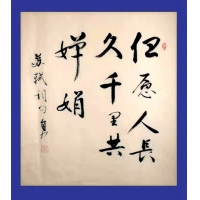 但愿人長
久千里共
婵娟
苏轼词句